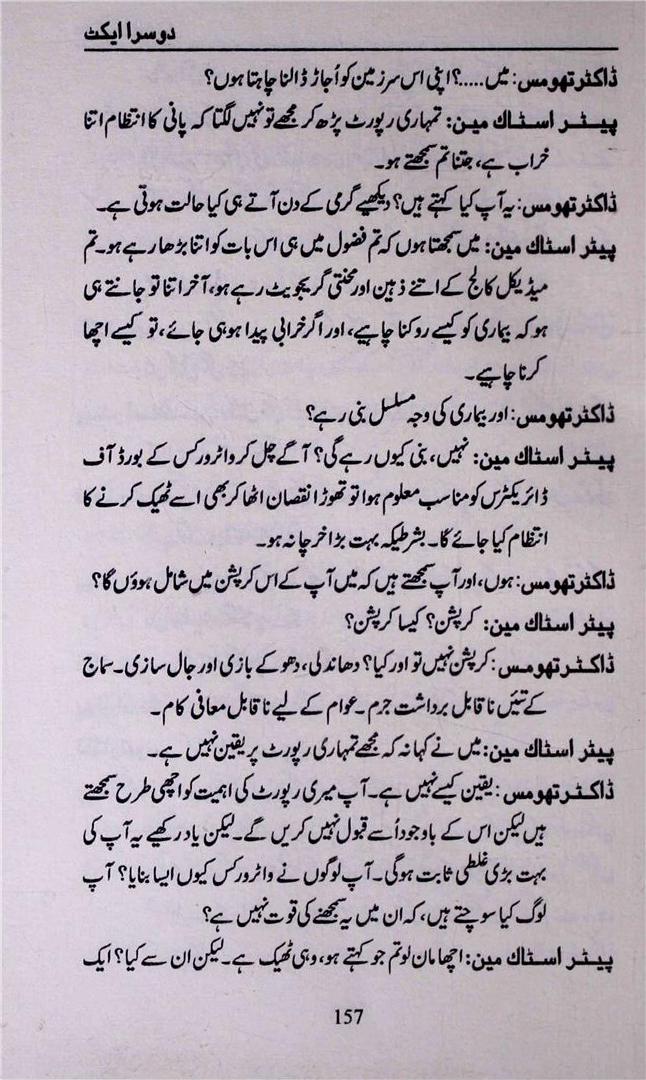 دوسرا ایکٹ
ڈاکٹر تھومس: میں.....؟ اپنی اس سرزمین کو اُجاڑ ڈالنا چاہتا ہوں؟
پیٹر اسٹاک مین: تمہاری رپورٹ پڑھ کر مجھے تو نہیں لگتا کہ پانی کا انتظام اتنا
خراب ہے، جتنا تم سمجھتے ہو۔
ڈاکٹر تھومس: یہ آپ کیا کہتے ہیں؟ دیکھیے گرمی کے دن آتے ہی کیا حالت ہوتی ہے۔
پیٹر اسٹاک مین: میں سمجھتا ہوں کہ تم فضول میں ہی اس بات کو اتنا بڑھا رہے ہو۔ تم
میڈیکل کالج کے اتنے ذہین اور محنتی گریجویٹ رہے ہو، آخر اتنا تو جانتے ہی
ہو کہ بیماری کو کیسے روکنا چاہیے، اور اگر خرابی پیدا ہو ہی جائے، تو کیسے اچھا
کرنا چاہیے۔
ڈاکٹر تھومس: اور بیماری کی وجہ مسلسل بنی رہے؟
پیٹر اسٹاک مین: نہیں، بنی کیوں رہے گی؟ آگے چل کر واٹر ورکس کے بورڈ آف
ڈائریکٹرس کو مناسب معلوم ہوا تو تھوڑا نقصان اٹھا کر بھی اسے ٹھیک کرنے کا
انتظام کیا جائے گا۔ بشرطیکہ بہت بڑا خرچا نہ ہو۔
ڈاکٹر تھومس: ہوں، اور آپ سمجھتے ہیں کہ میں آپ کے اس کرپشن میں شامل ہوؤں گا؟
پیٹر اسٹاک مین: کرپشن؟ کیسا کرپشن؟
ڈاکٹر تھومس: کرپشن نہیں تو اور کیا؟ دھاندلی، دھوکے بازی اور جال سازی۔ سماج
کے تئیں ناقابل برداشت جرم۔ عوام کے لیے ناقابل معافی کام۔
پیٹر اسٹاک مین: میں نے کہا نہ کہ مجھے تمہاری رپورٹ پر یقین نہیں ہے۔
ڈاکٹر تھومس: یقین کیسے نہیں ہے۔ آپ میری رپورٹ کی اہمیت کو اچھی طرح سمجھتے
ہیں لیکن اس کے باوجود اُسے قبول نہیں کریں گے۔ لیکن یاد رکھیے یہ آپ کی
بہت بڑی غلطی ثابت ہوگی۔ آپ لوگوں نے واٹر ورکس کیوں ایسا بنایا؟ آپ
لوگ کیا سوچتے ہیں، کہ ان میں یہ سمجھنے کی قوت نہیں ہے؟
پیٹر اسٹاک مین: اچھا مان لو تم جو کہتے ہو، وہی ٹھیک ہے۔ لیکن ان سے کیا؟ ایک
157